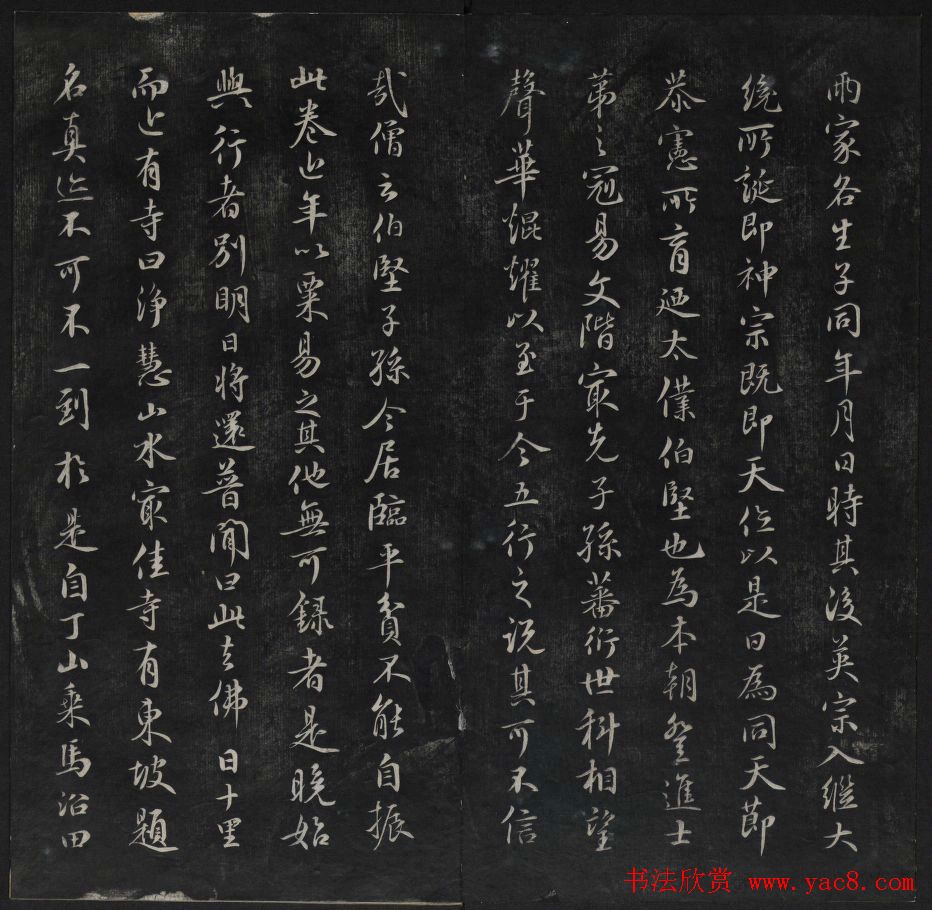 兩家各生子同年月日時其後英宗入繼大
統所誕即神宗既即天位以是日為同天節
恭憲所育迺太僕伯堅也為本朝登進士
第之冠易文階寂先子孫蕃衍世科相望
聲華焜耀以至于今五行之說其可不信
哉僧云伯堅子孫今居臨平貧不能自振
此卷近年以粟易之其他無可錄者是晚始
與行者別明日將還普聞曰此去佛日十里
而近有寺曰淨慧山水寂佳寺有東坡題
名真迹不可不一到於是自丁山乘馬沿田
书法欣赏 www.yac8.com